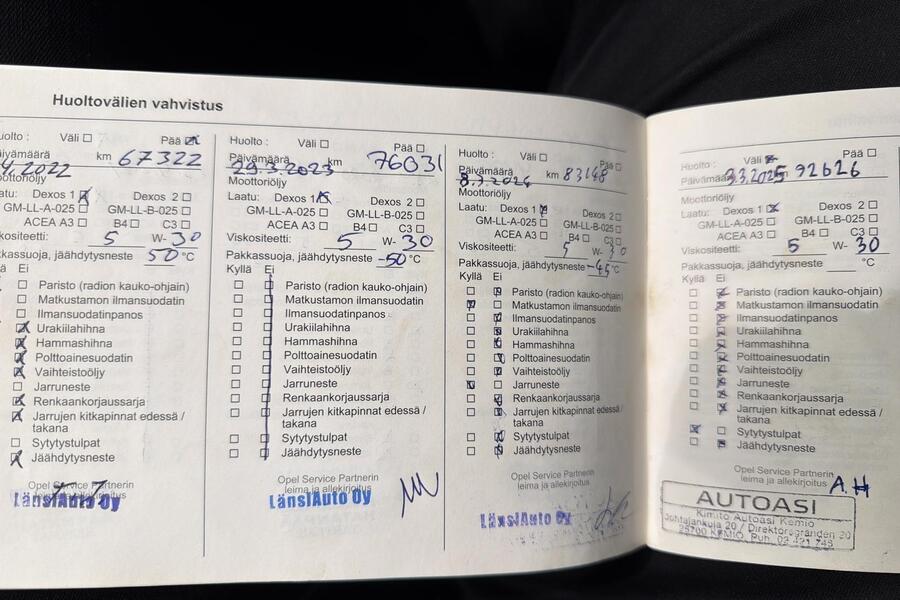 Huoltovälien vahvistus
uolto : Väli Pää
äivämäärä km 67322
4.2022
Moottoriöljy
aatu: Dexos 1 Dexos 2
GM-LL-A-025 GM-LL-B-025
ACEA A3 B4 C3
skositeetti: 5 W- 30
akkassuoja, jäähdytysneste 50 °C
ä Ei
Paristo (radion kauko-ohjain)
Matkustamon ilmansuodatin
Ilmansuodatinpanos
Urakiilahihna
Hammashihna
Polttoainesuodatin
Vaihteistoöljy
Jarruneste
Renkaankorjaussarja
Jarrujen kitkapinnat edessä /
takana
Sytytystulpat
Jäähdytysneste
Opel Service Partnerin
leima ja allekirjoitus
LänsiAuto Oy
Huolto : Väli Pää
Päivämäärä km 76031
29.3.2023
Moottoriöljy
Laatu: Dexos 1 Dexos 2
GM-LL-A-025 GM-LL-B-025
ACEA A3 B4 C3
Viskositeetti: 5 W- 30
Pakkassuoja, jäähdytysneste -50 °C
Kyllä Ei
Paristo (radion kauko-ohjain)
Matkustamon ilmansuodatin
Ilmansuodatinpanos
Urakiilahihna
Hammashihna
Polttoainesuodatin
Vaihteistoöljy
Jarruneste
Renkaankorjaussarja
Jarrujen kitkapinnat edessä /
takana
Sytytystulpat
Jäähdytysneste
Opel Service Partnerin
leima ja allekirjoitus
LänsiAuto Oy
Huolto : Väli Pää
Päivämäärä km 83148
8.3.2024
Moottoriöljy
Laatu: Dexos 1 Dexos 2
GM-LL-A-025 GM-LL-B-025
ACEA A3 B4 C3
Viskositeetti: 5 W- 30
Pakkassuoja, jäähdytysneste -45 °C
Kyllä Ei
Paristo (radion kauko-ohjain)
Matkustamon ilmansuodatin
Ilmansuodatinpanos
Urakiilahihna
Hammashihna
Polttoainesuodatin
Vaihteistoöljy
Jarruneste
Renkaankorjaussarja
Jarrujen kitkapinnat edessä /
takana
Sytytystulpat
Jäähdytysneste
Opel Service Partnerin
leima ja allekirjoitus
LänsiAuto Oy
Huolto : Väli Pää
Päivämäärä 3.3.2025 92626
Moottoriöljy
Laatu: Dexos 1 Dexos 2
GM-LL-A-025 GM-LL-B-025
ACEA A3 B4 C3
Viskositeetti: 5 W- 30
Pakkassuoja, jäähdytysneste °C
Kyllä Ei
Paristo (radion kauko-ohjain)
Matkustamon ilmansuodatin
Ilmansuodatinpanos
Urakiilahihna
Hammashihna
Polttoainesuodatin
Vaihteistoöljy
Jarruneste
Renkaankorjaussarja
Jarrujen kitkapinnat edessä /
takana
Sytytystulpat
Jäähdytysneste
Opel Service Partnerin
leima ja allekirjoitus A.H
AUTOASI
Kimito Autoasi Kemiö
20 / Direktörsgränden 20
25700 KEMIÖ, Puh. 02 421 745